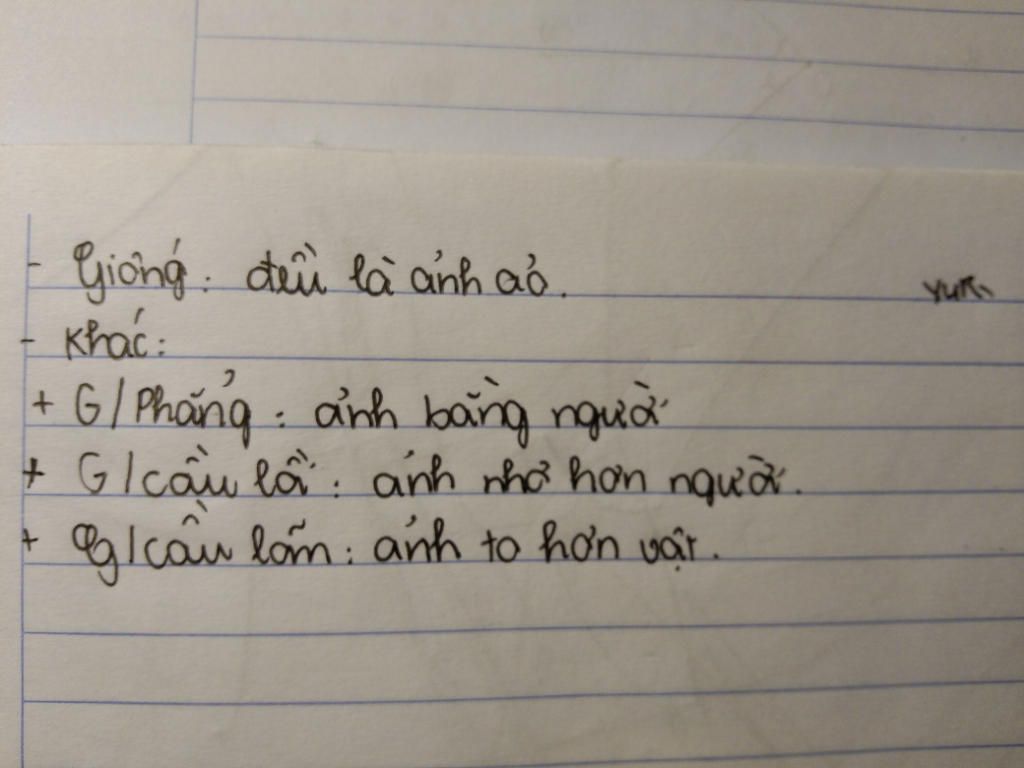 - Giống: đều là ảnh ảo.
- Khác:
+ G/Phẳng: ảnh bằng người
+ G/cầu lồi: ảnh nhỏ hơn người.
+ g/cầu lõm: ảnh to hơn vật.